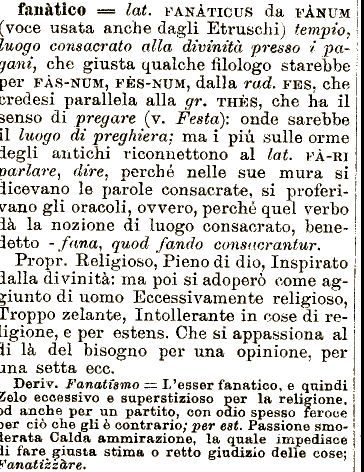 fanàtico = lat. FANÀTICUS da FÀNUM
(voce usata anche dagli Etruschi) tempio,
luogo consacrato alla divinità presso i pa-
gani, che giusta qualche filologo starebbe
per FÀS-NUM, FÈS-NUM, dalla rad. FES, che
credesi parallela alla gr. THÈS, che ha il
senso di pregare (v. Festa): onde sarebbe
il luogo di preghiera; ma i più sulle orme
degli antichi riconnettono al lat. FÀ-RI
parlare, dire, perché nelle sue mura si
dicevano le parole consacrate, si proferi-
vano gli oracoli, ovvero, perché quel verbo
dà la nozione di luogo consacrato, bene-
detto - fana, quod fando consacrantur.
Propr. Religioso, Pieno di dio, Inspirato
dalla divinità: ma poi si adoperò come ag-
giunto di uomo Eccessivamente religioso,
Troppo zelante, Intollerante in cose di re-
ligione, e per estens. Che si appassiona al
di là del bisogno per una opinione, per
una setta ecc.
Deriv. Fanatismo = L'esser fanatico, e quindi
Zelo eccessivo e superstizioso per la religione,
od anche per un partito, con odio spesso feroce
per ciò che gli è contrario; per est. Passione smo-
derata Calda ammirazione, la quale impedisce
di fare giusta stima o retto giudizio delle cose;
Fanatizzàre.